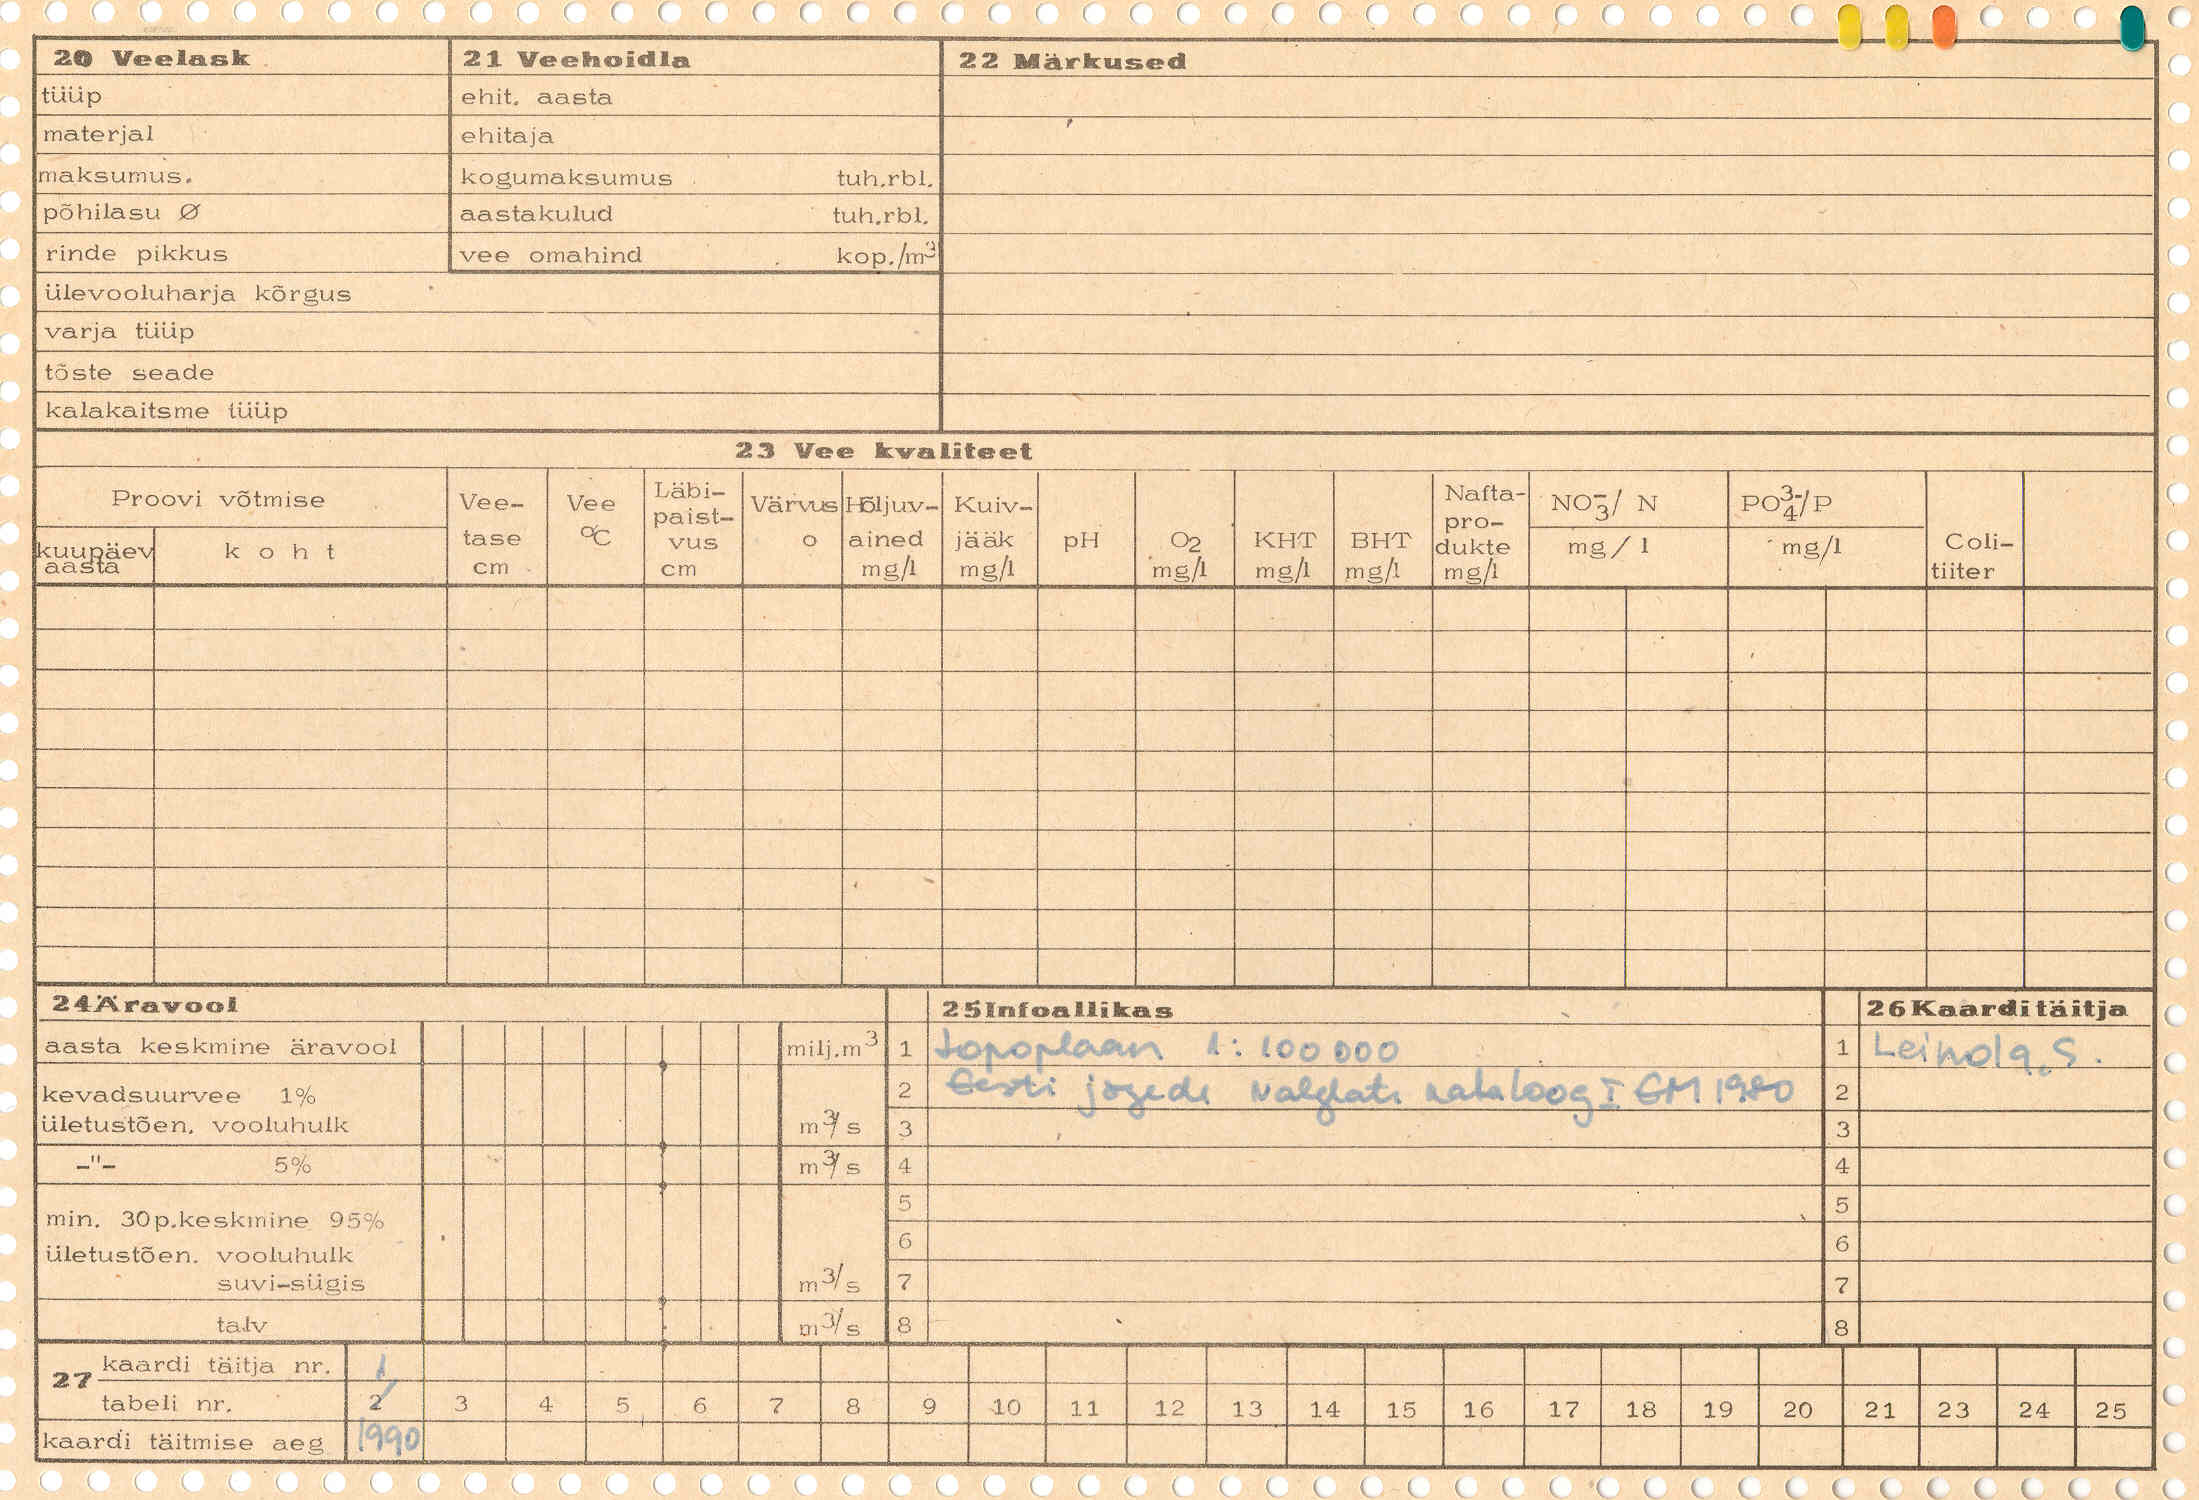 20 Veelask
tüüp
materjal
maksumus.
põhilasu Ø
rinde pikkus
ülevooluharja kõrgus
varja tüüp
tõste seade
kalakaitsme tüüp
21 Veehoidla
ehit. aasta
ehitaja
kogumaksumus tuh.rbl.
aastakulud tuh.rbl.
vee omahind kop./m³
22 Märkused
23 Vee kvaliteet
Proovi võtmise
kuupäev
aasta
koht
Vee-
tase
cm
Vee
°C
Läbi-
paist-
vus
cm
Värvus
o
Hõljuv-
ained
mg/l
Kuiv-
jääk
mg/l
pH
O2
mg/l
KHT
mg/l
BHT
mg/l
Nafta-
pro-
dukte
mg/l
NO3⁻/ N
mg/l
PO4³⁻/P
mg/l
Coli-
tiiter
24 Äravool
aasta keskmine äravool milj.m³
kevadsuurvee 1%
ületustõen. vooluhulk m³/s
-"- 5% m³/s
min. 30p.keskmine 95%
ületustõen. vooluhulk
suvi-sügis m³/s
talv m³/s
25 Infoallikas
1 topoplaan 1:100 000
2 Eesti jõgede valglate kataloog I EM 1980
3
4
5
6
7
8
26 Kaarditäitja
1 Leinola, S.
2
3
4
5
6
7
8
27 kaardi täitja nr. 1
tabeli nr. 2 3 4 5 6 7 8 9 10 11 12 13 14 15 16 17 18 19 20 21 23 24 25
kaardi täitmise aeg 1990